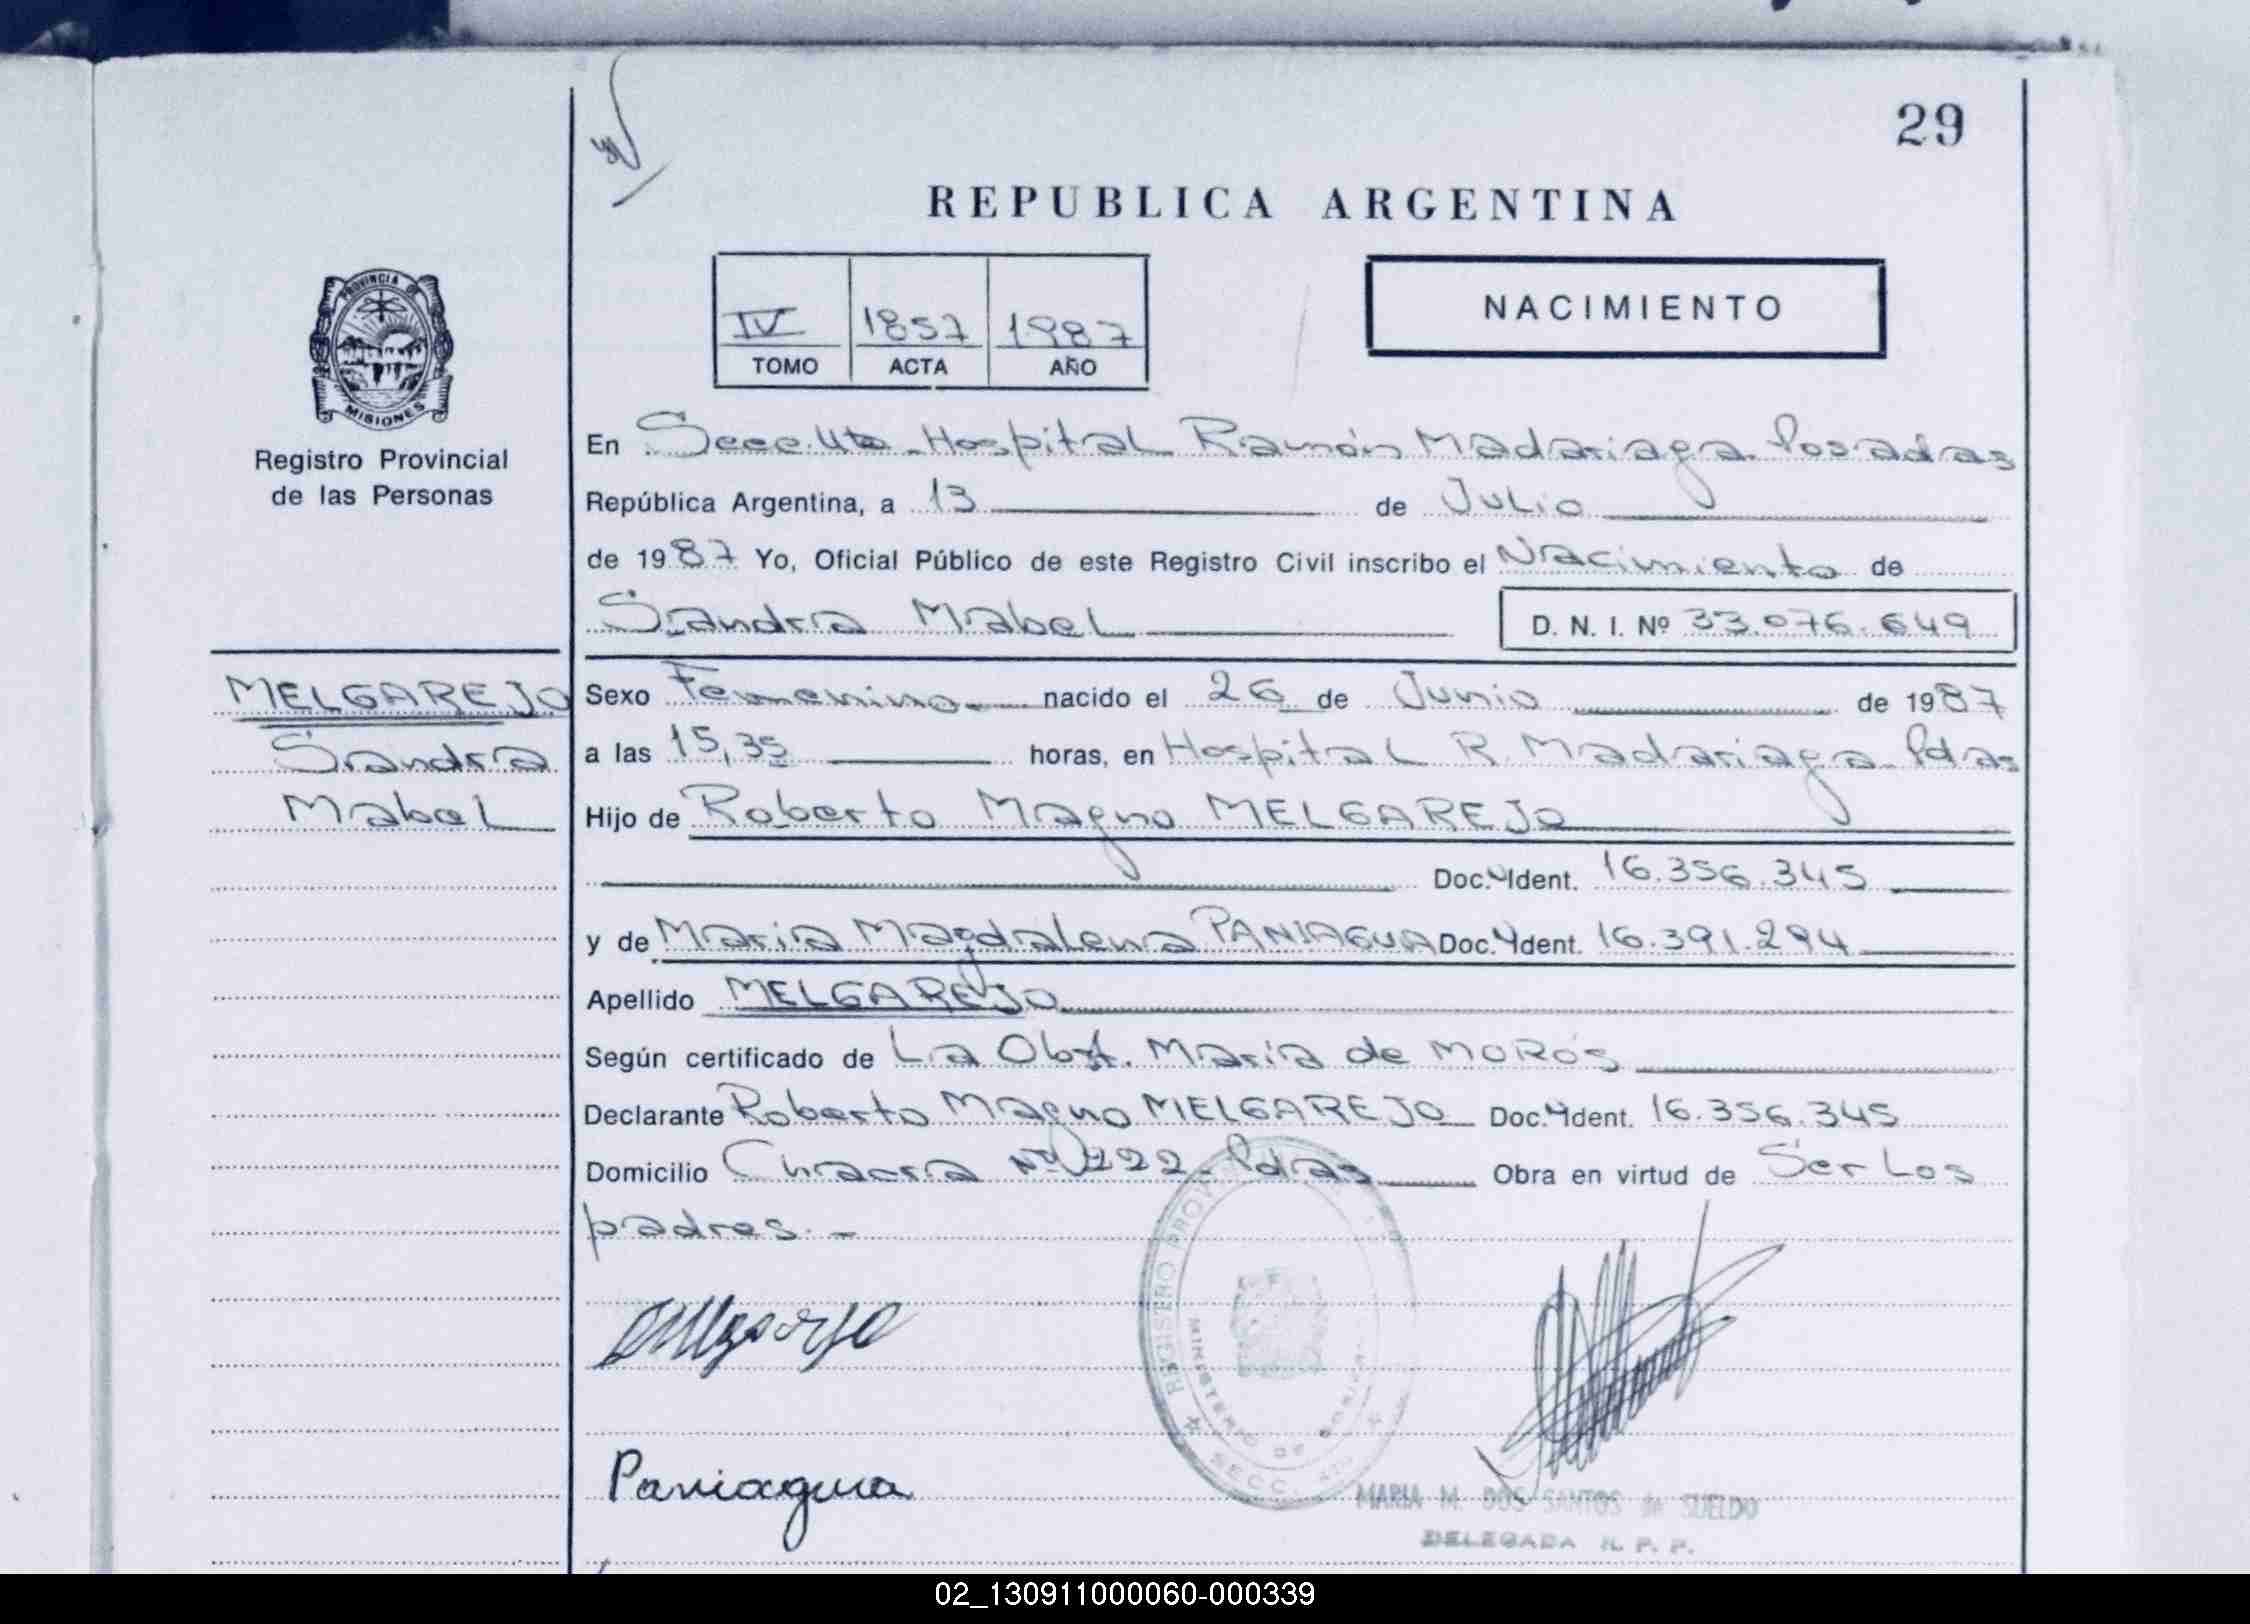 29
REPUBLICA ARGENTINA
IV 1857 1987
TOMO ACTA AÑO
NACIMIENTO
PROVINCIA DE
MISIONES
Registro Provincial
de las Personas
MELGAREJO
Sandra
Mabel
En Secc. 4ta. Hospital Ramón Madariaga. Posadas
República Argentina, a 13 de Julio
de 1987 Yo, Oficial Público de este Registro Civil inscribo el Nacimiento de
Sandra Mabel D. N. I. Nº 33.076.649
Sexo Femenino nacido el 26 de Junio de 1987
a las 15,35 horas, en Hospital R. Madariaga. Pdas
Hijo de Roberto Magno MELGAREJO
Doc. Ident. 16.356.345
y de Maria Magdalena PANIAGUA Doc. Ident. 16.391.294
Apellido MELGAREJO
Según certificado de La Obst. María de MORÓS
Declarante Roberto Magno MELGAREJO Doc. Ident. 16.356.345
Domicilio Chacra Nº 222. Pdas Obra en virtud de Ser Los
padres.-
REGISTRO
MINISTERIO DE
SECC.
Paniagua
MARIA M. DOS SANTOS de SUELDO
DELEGADA R. P. P.
02_130911000060-000339